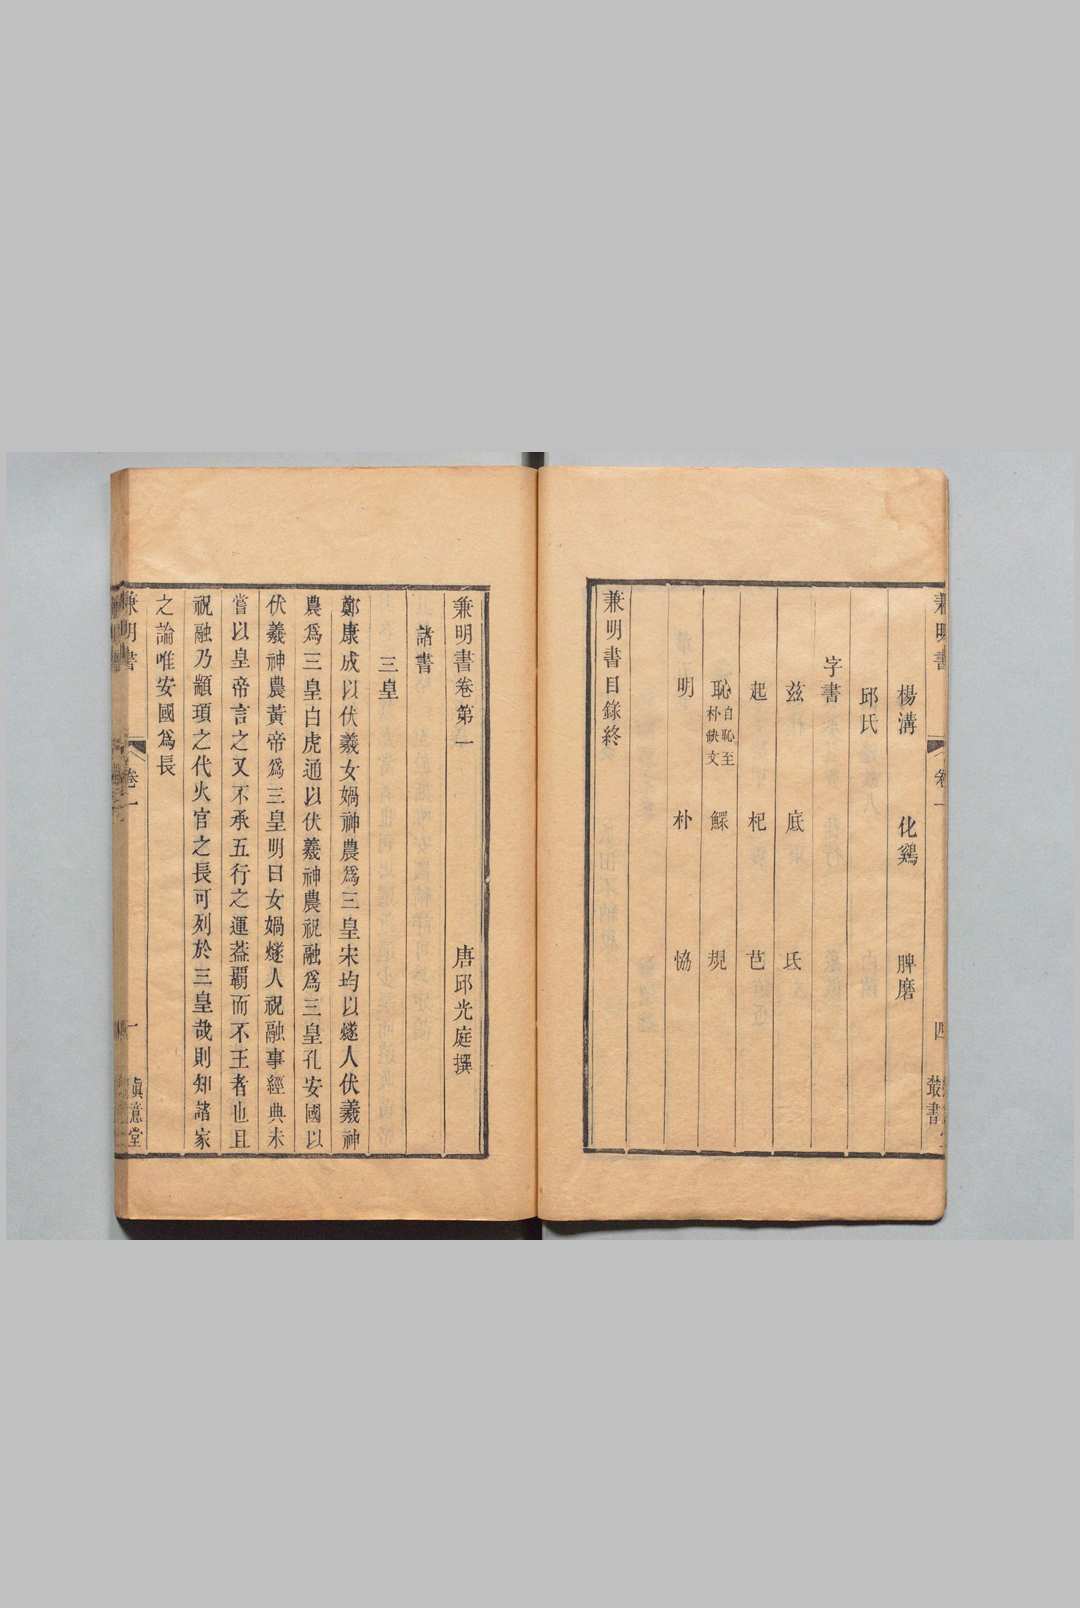 兼明書
卷一
四
叢書
楊溝
化鷄
脾磨
邱氏
字書
兹
底
氐
起
杞
芑
恥
自恥至
朴缺文
鰥
規
明
朴
恊
兼明書目錄終
兼明書卷第一
唐邱光庭撰
諸書
三皇
鄭康成以伏羲女媧神農爲三皇宋均以燧人伏羲神
農爲三皇白虎通以伏羲神農祝融爲三皇孔安國以
伏羲神農黃帝爲三皇明曰女媧燧人祝融事經典未
嘗以皇帝言之又不承五行之運葢霸而不王者也且
祝融乃顓頊之代火官之長可列於三皇哉則知諸家
之論唯安國爲長
兼明書
卷一
一
真意堂